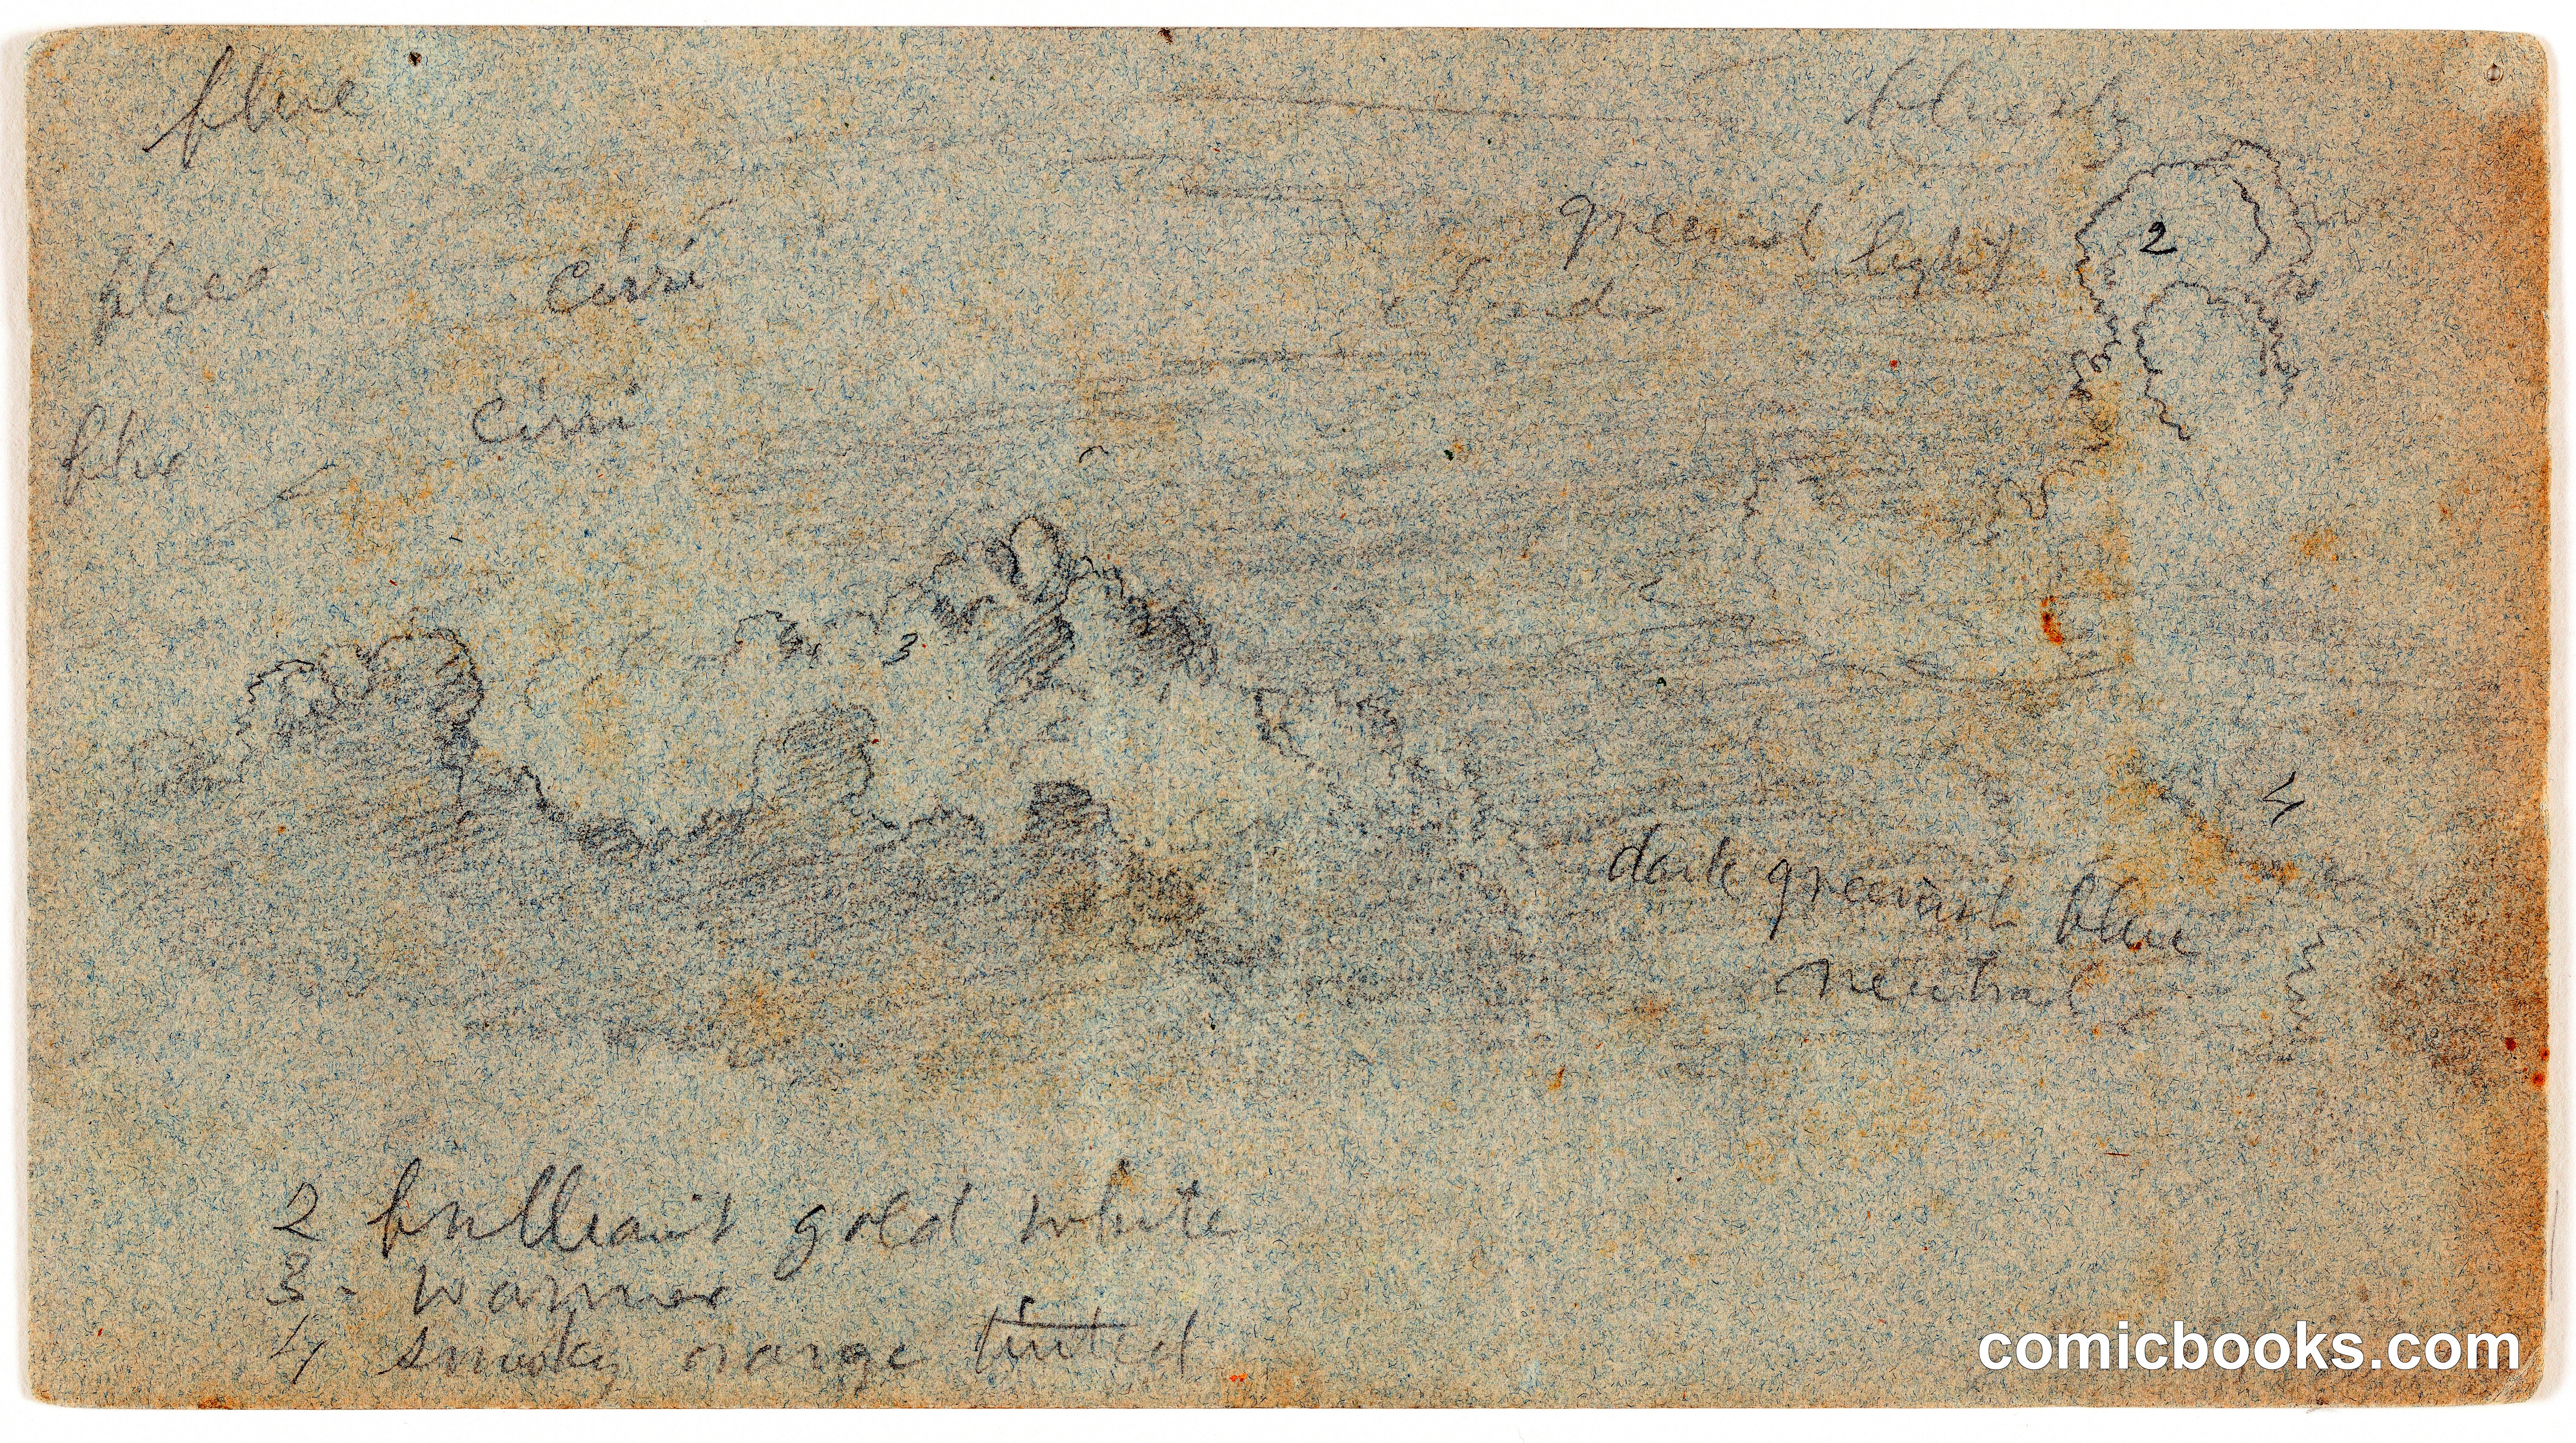 blue
bluish
2
greenish light
blue
cirri
cirri
blue
3
4
dark greenish blue
neutral
2 brilliant gold white
3 - warmer
4 smoky orange tinted
comicbooks.com